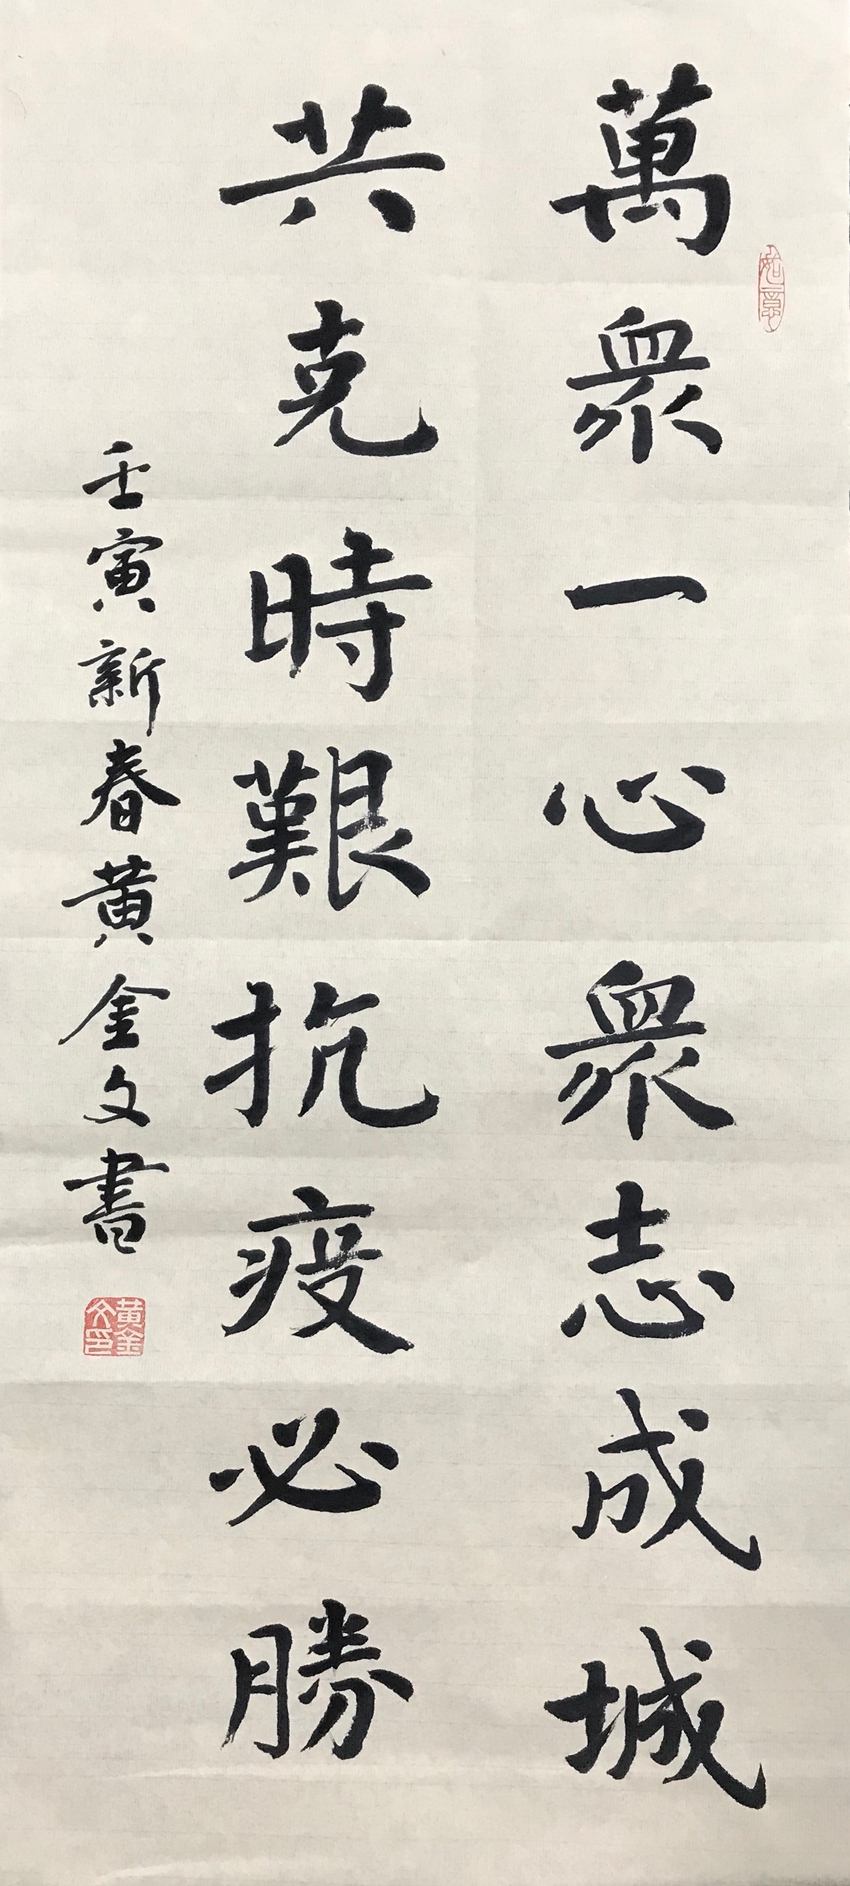 萬衆一心衆志成城
共克時艱抗疫必勝
壬寅新春黄金文書
如意
黄金文印